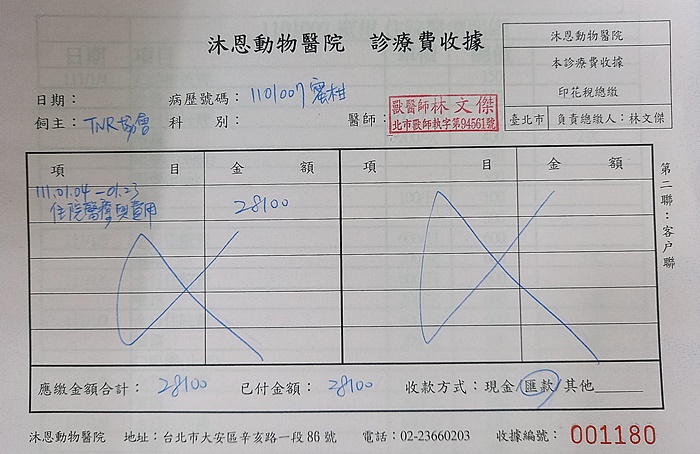 沐恩動物醫院 診療費收據
沐恩動物醫院
本診療費收據
印花稅總繳
臺北市 負責總繳人：林文傑
日期： 病歷號碼：1101007 蜜柑
飼主：TNR協會 科 別： 醫師：
獸醫師林文傑
北市獸師執字第94561號
項 目 金 額 項 目 金 額
111.01.04-01.23
住院醫療與費用 28100
第二聯：客戶聯
應繳金額合計：28100 已付金額：28100 收款方式：現金/匯款/其他
沐恩動物醫院 地址：台北市大安區辛亥路一段86號 電話：02-23660203 收據編號：001180